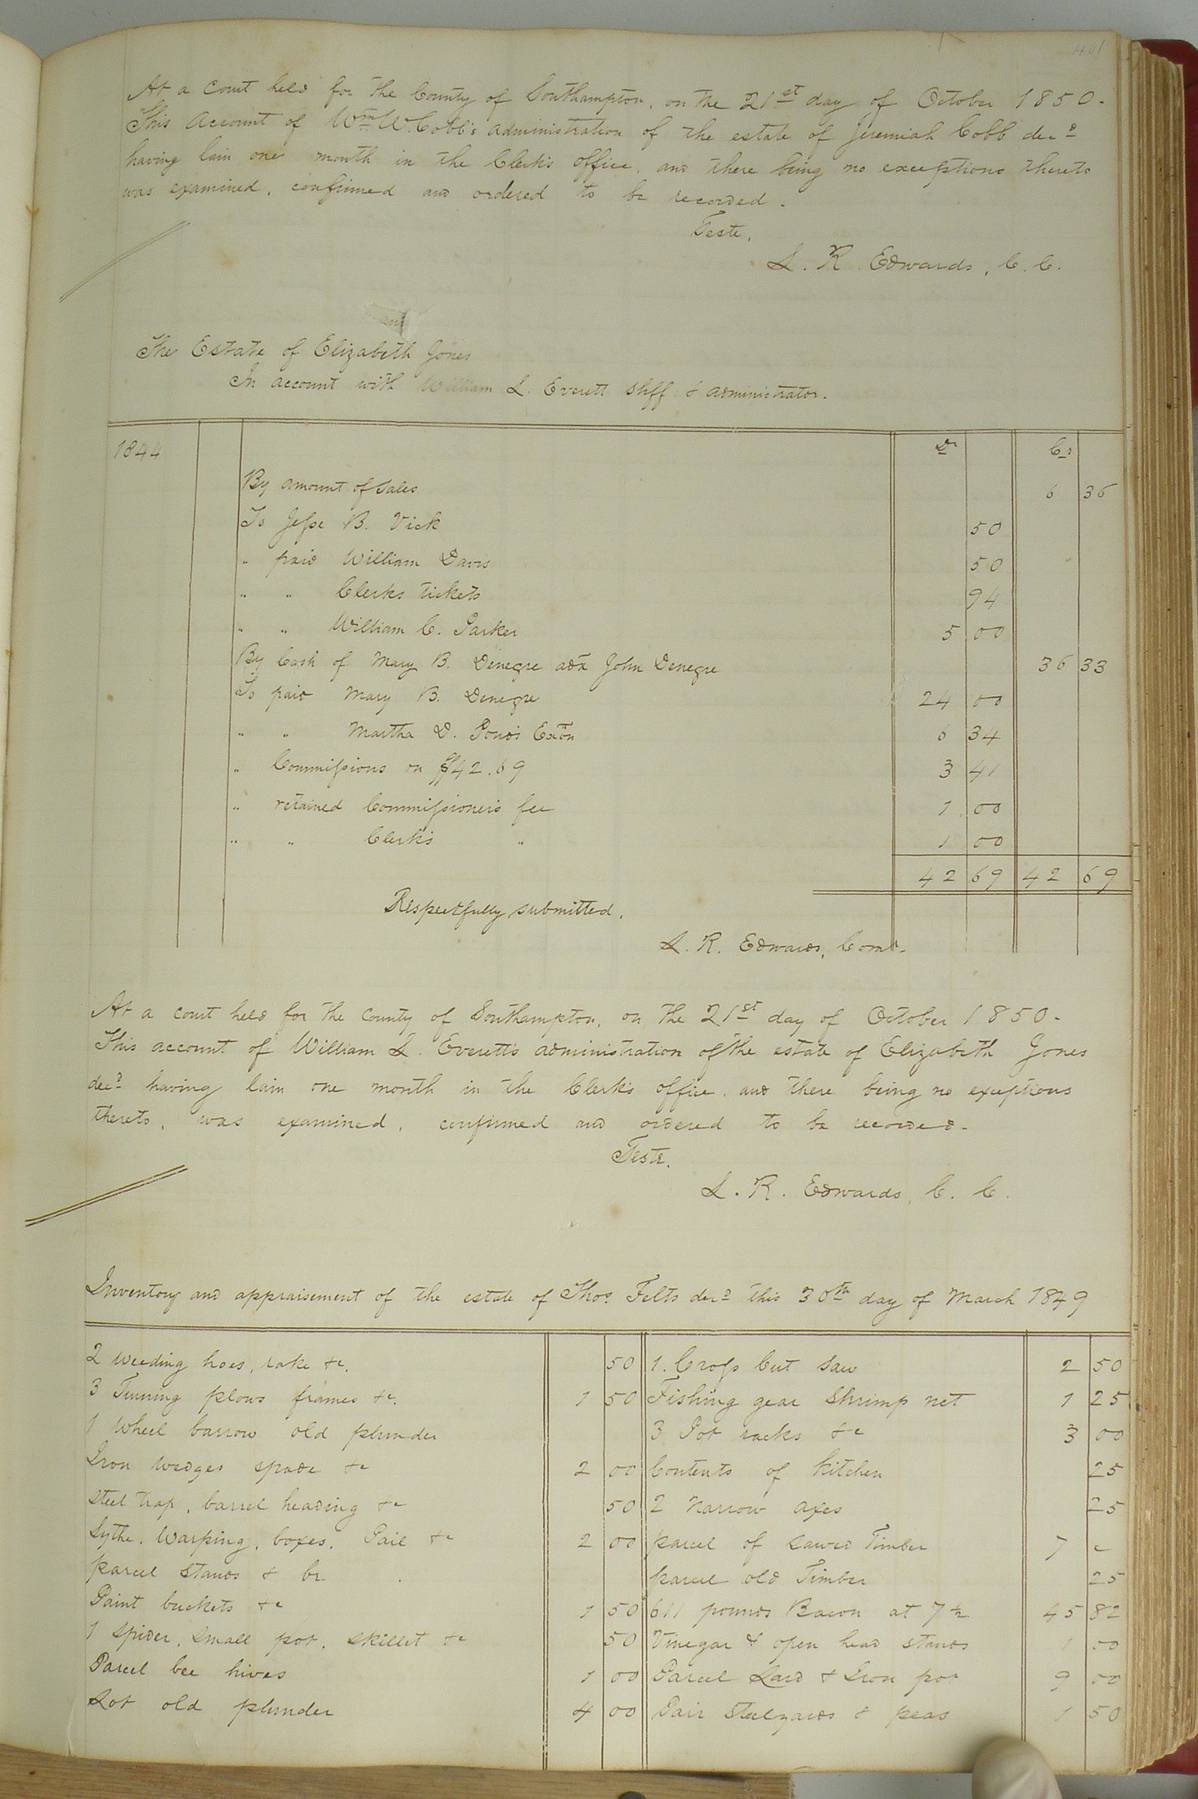 401
At a court held for the County of Southampton, on the 21st day of October 1850.
This Account of Wm W. Cobb's administration of the estate of Jeremiah Cobb decd
having lain one month in the Clerk's office, and there being no exceptions thereto
was examined, confirmed and ordered to be recorded.
Teste,
L. R. Edwards, C. C.
The Estate of Elizabeth Jones
In account with William L. Everett shff & administrator.
1844 Dr Cr
By amount of sales 6 36
To Jesse B. Vick 50
" paid William Davis 50
" " Clerks tickets 94
" " William C. Parker 5 00
By Cash of Mary B. Denegre adx John Denegre 36 33
To paid Mary B. Denegre 24 00
" " Martha D. Pond's Exton 6 34
" Commissions on $42.69 3 41
" retained Commissioners fee 1 00
" " Clerk's " 1 00
42 69 42 69
Respectfully submitted,
L. R. Edwards, Comr.
At a court held for the county of Southampton, on the 21st day of October 1850.
This account of William L. Everett's administration of the estate of Elizabeth Jones
decd having lain one month in the Clerk's office, and there being no exceptions
thereto, was examined, confirmed and ordered to be recorded.
Teste,
L. R. Edwards, C. C.
Inventory and appraisement of the estate of Thos Felts decd this 30th day of March 1849
2 weeding hoes, rake &c. 50 1. Cross Cut Saw 2 50
3 Turning plows frames &c. 1 50 Fishing gear Shrimp net 1 25
1 Wheel barrow old plunder 3 Pot racks &c 3 00
Iron wedges spade &c 2 00 Contents of kitchen 25
Steel trap, barrel heading &c 50 2 Narrow axes 25
Sythe, Warping, boxes, Pail &c 2 00 parcel of sawed Timber 7 "
parcel stands & br parcel old Timber 25
Paint buckets &c 1 50 611 pounds Bacon at 7½ 45 82
1 spider, small pot, skillet &c 50 Vinegar & open head stands 1 00
Parcel bee hives 1 00 Parcel Lard & Iron pot 9 00
Lot old plunder 4 00 Pair Steelyards & peas 1 50